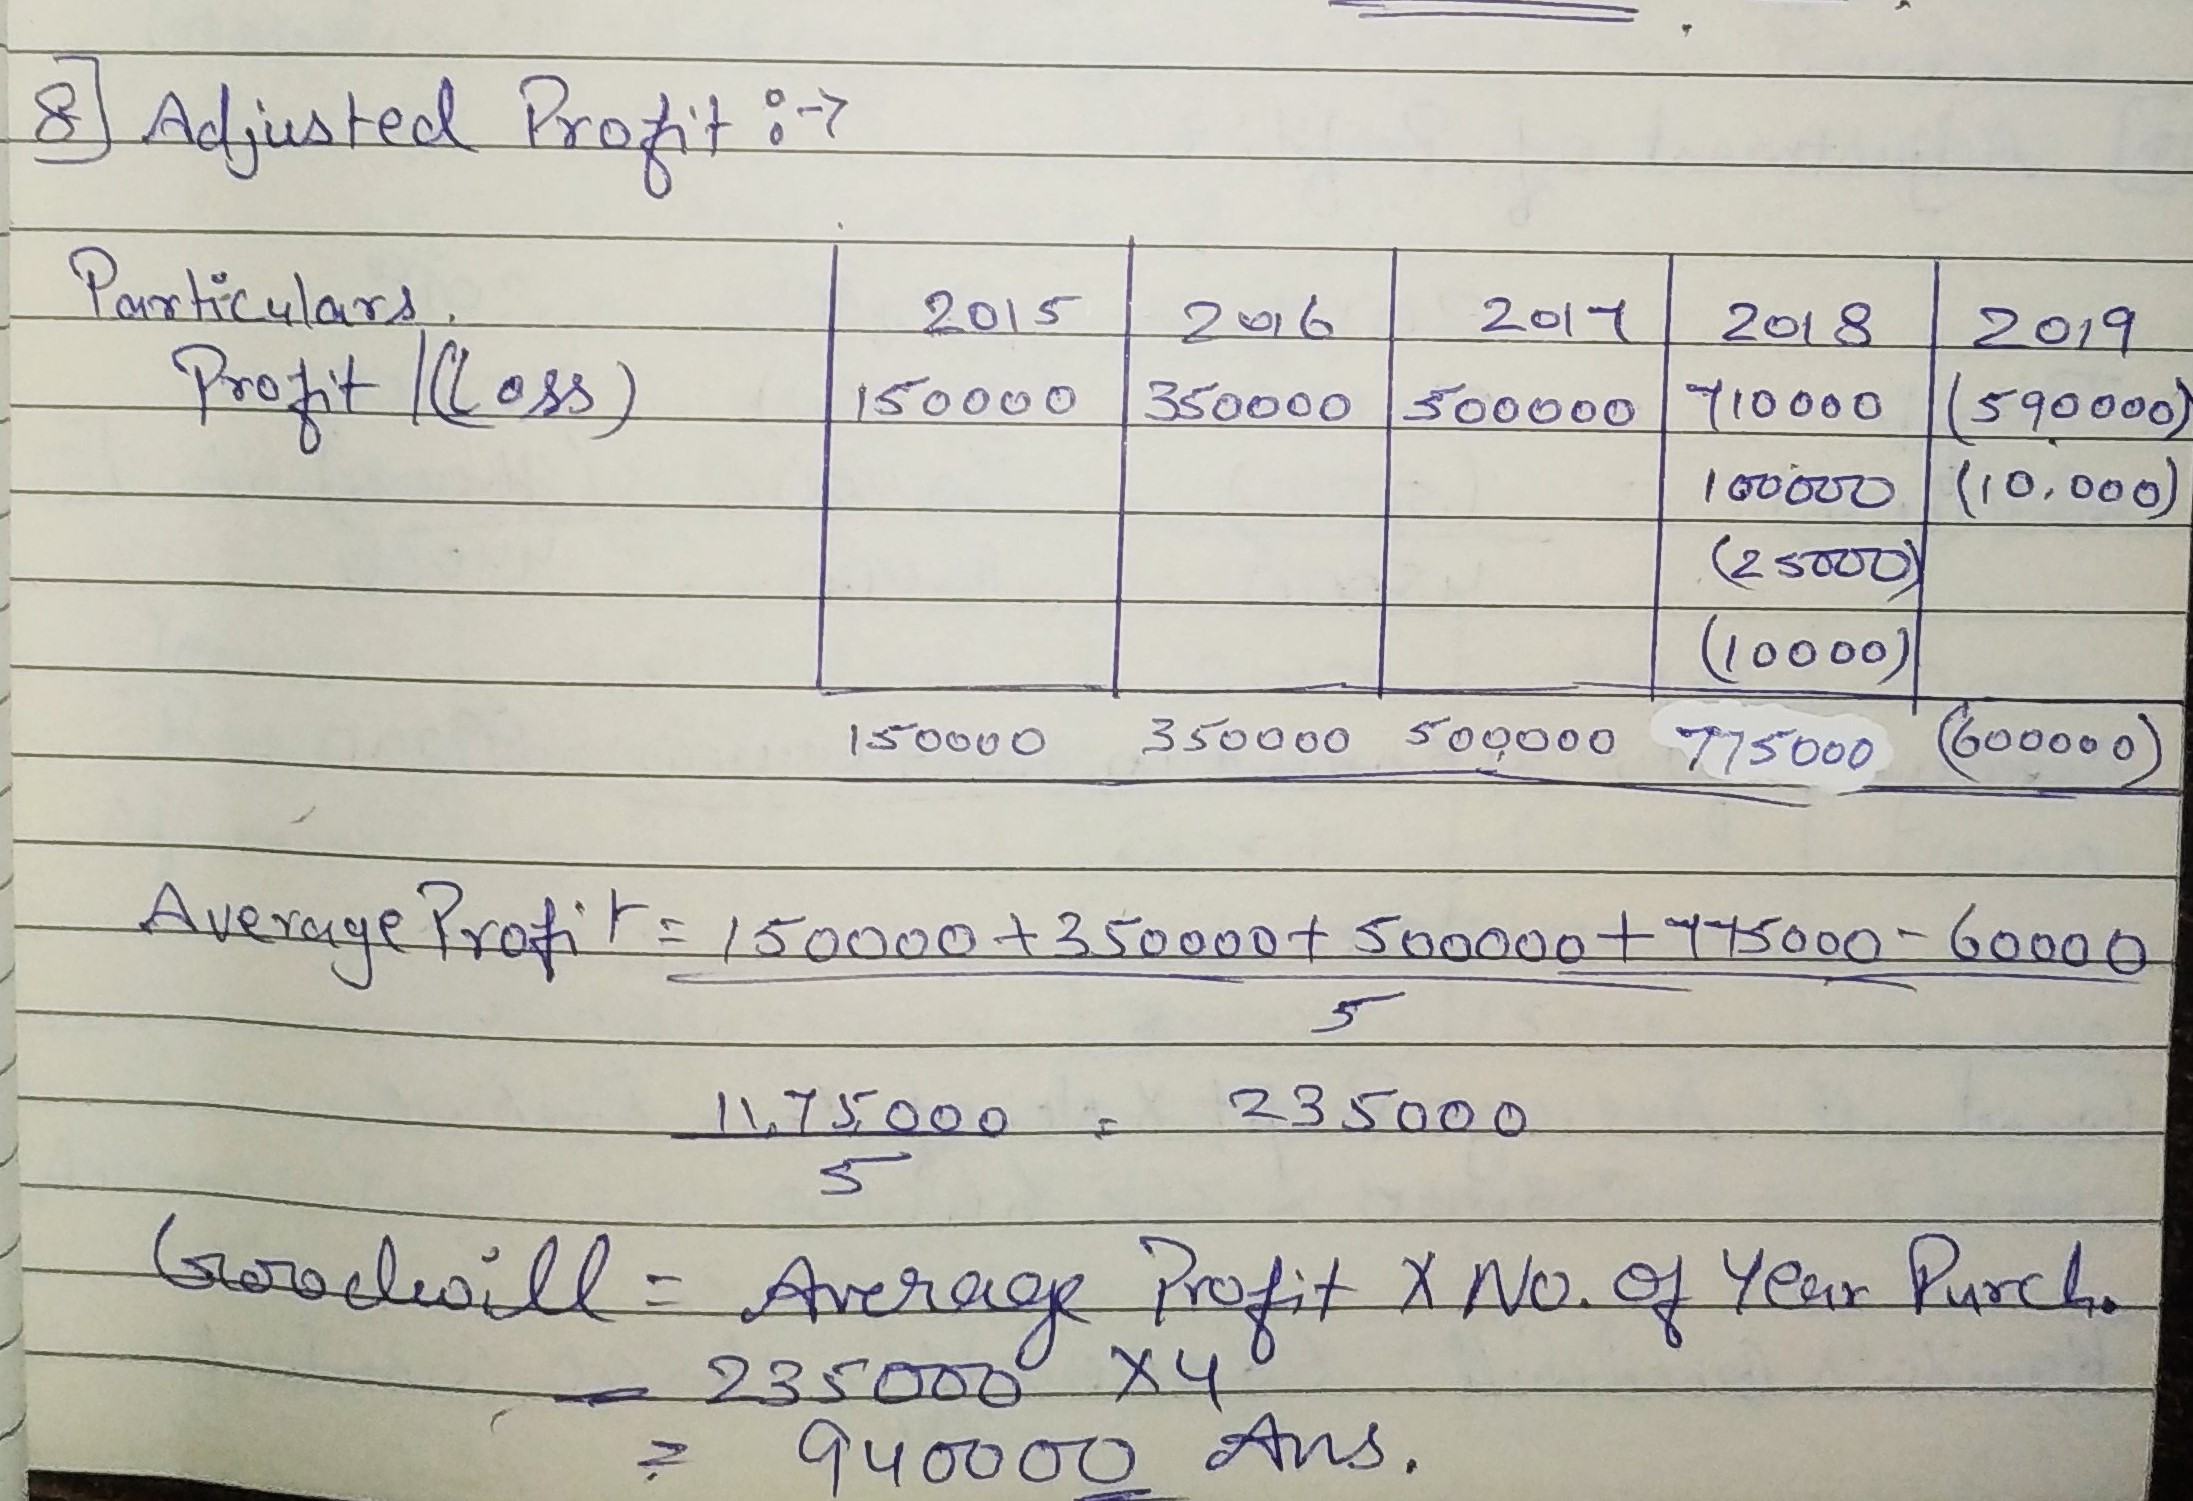 8] Adjusted Profit :→
Particulars. 2015 2016 2017 2018 2019
Profit /(Loss) 150000 350000 500000 710000 (590000)
100000 (10,000)
(25000)
(10000)
150000 350000 500000 775000 (600000)
Average Profit = 150000+350000+500000+775000-60000
5
11,75,000 = 235000
5
Goodwill = Average Profit X No. of Year Purch.
= 235000 X4
= 940000 Ans.